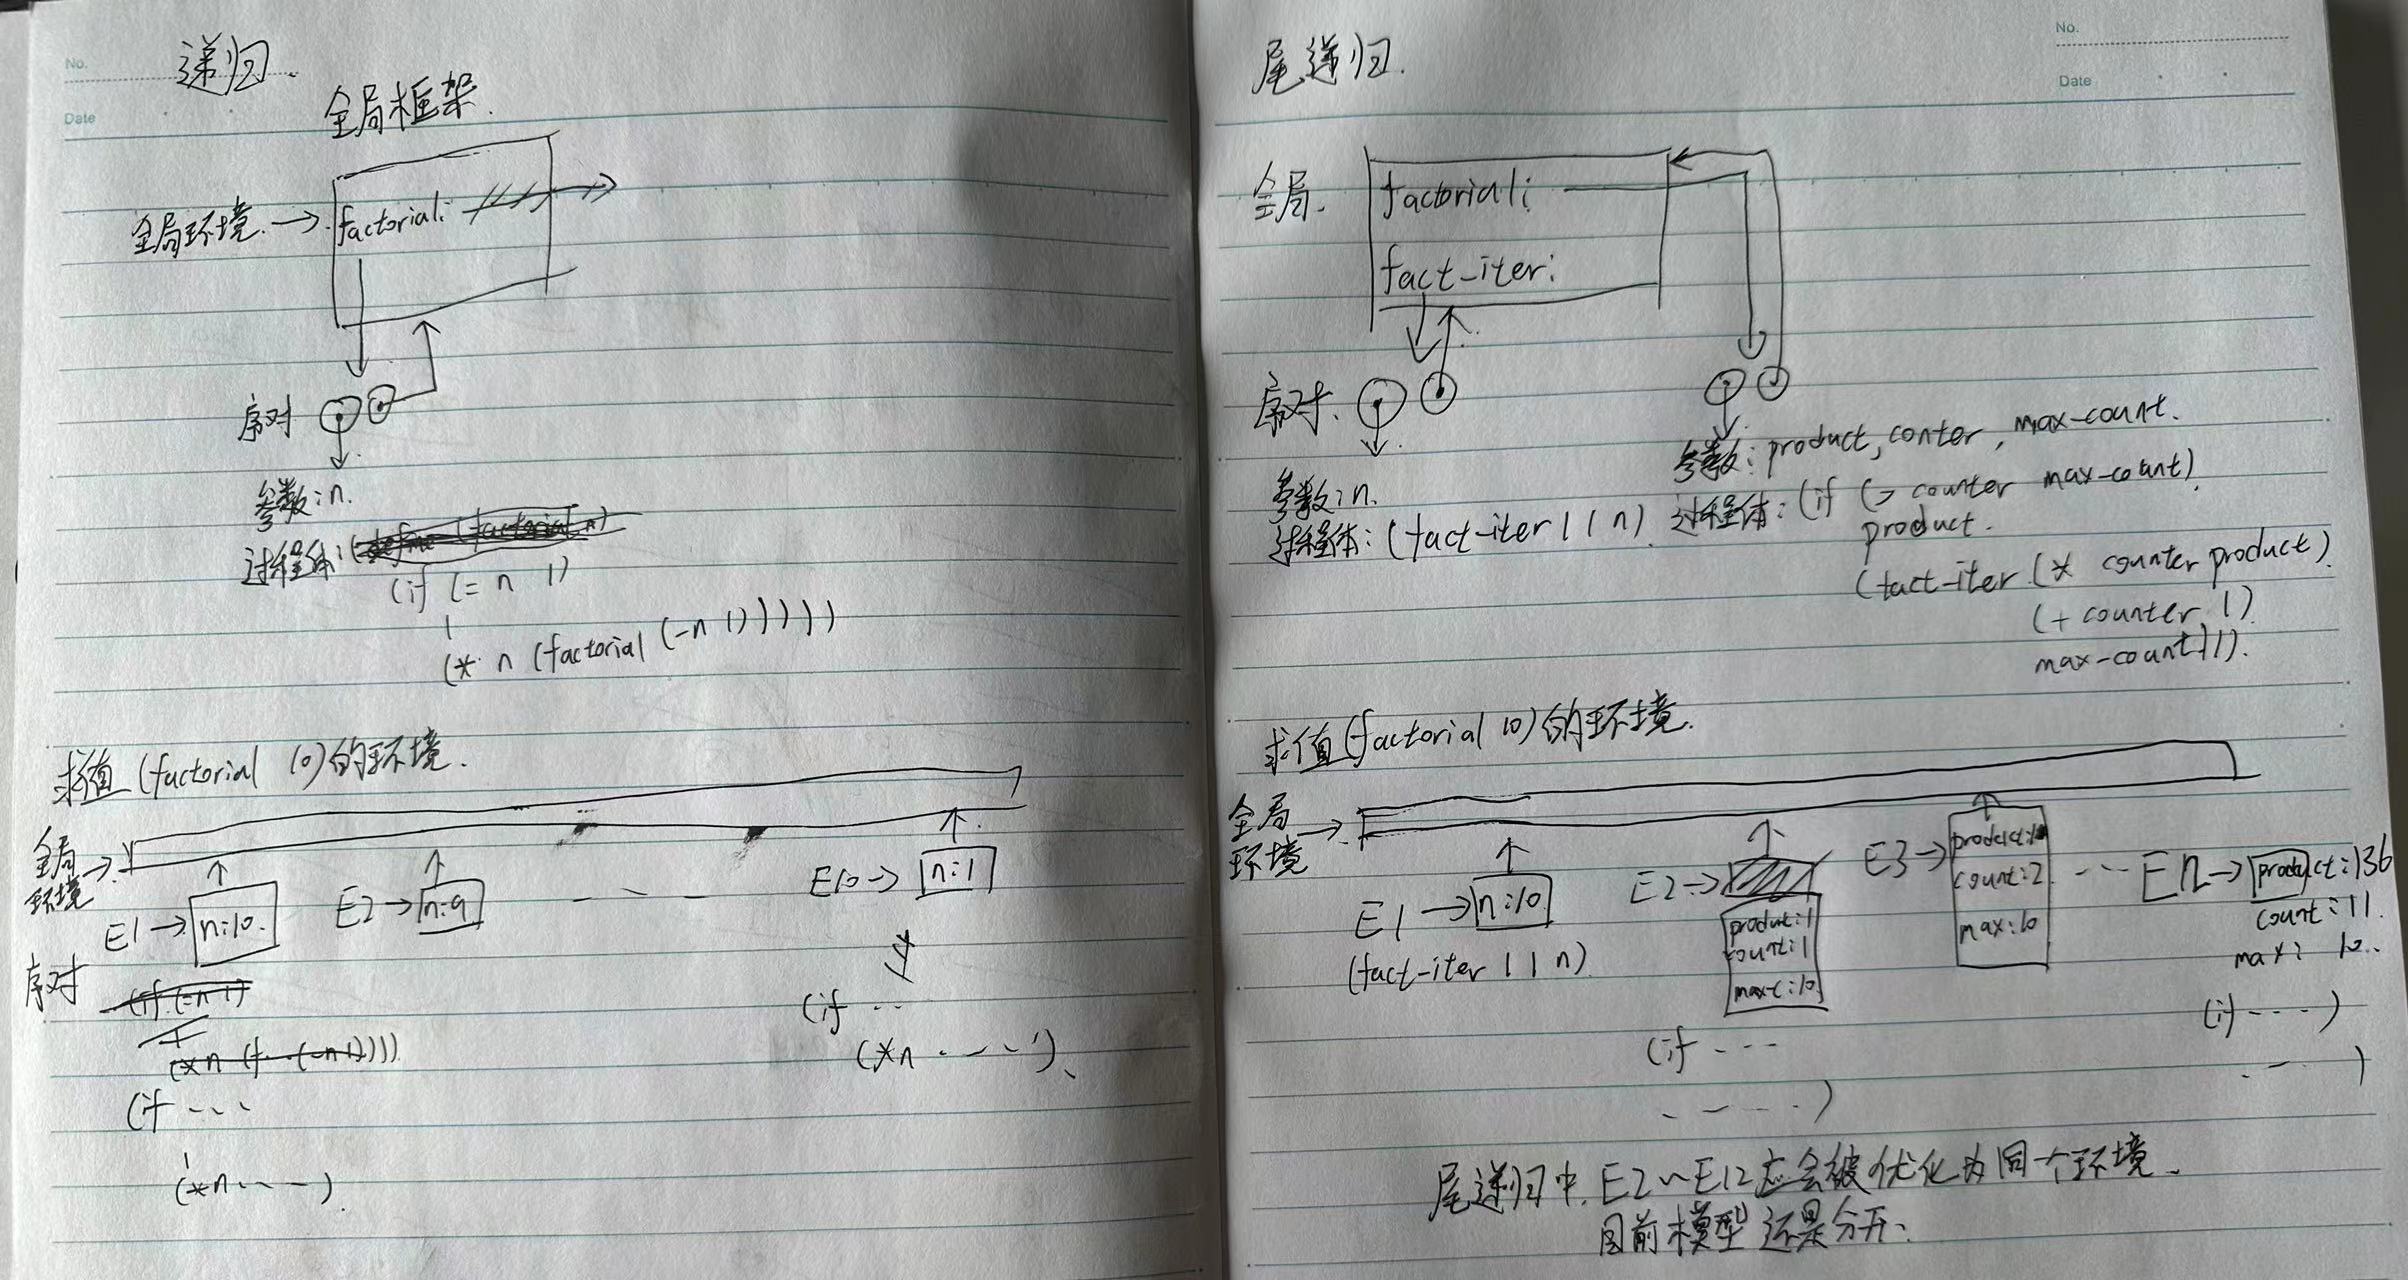 No.
Date
递归.
全局框架.
全局环境. → factorial:
序对
参数:n.
过程体:
(if (= n 1)
1
(* n (factorial (-n 1)))))
求值 (factorial 10)的环境.
全局
环境
E1 → n:10.
E2 → n:9
E10 → n:1
序对
(if (=n 1)
(if ...
1
(*n ....)
(if ..
(*n ....).
No.
Date
尾递归.
全局.
factorial:
fact-iter:
序对.
参数:n.
过程体: (fact-iter 1 1 n)
参数: product, conter, max-count.
过程体: (if (> counter max-count)
product.
(fact-iter (* counter product)
(+ counter 1)
max-count))).
求值(factorial 10)的环境.
全局
环境
E1 → n:10
(fact-iter 1 1 n)
E2 →
product:1
count:1
max-c:10
(if ...
....)
E3 →
product:1
count:2
max:10
...
E12 → product:136
count:11.
max: 10..
(if ....)
...)
尾递归中. E2~E12应会被优化为同个环境.
目前模型还是分开.